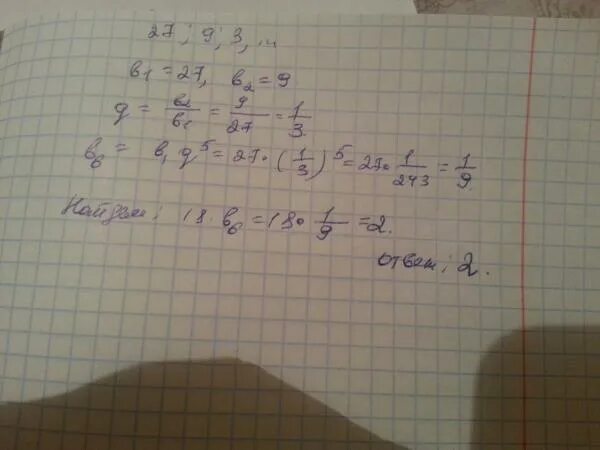 27; 9; 3, ...
в₁ = 27, в₂ = 9
q = в₂/в₁ = 9/27 = 1/3.
в₆ = в₁ q⁵ = 27 · (1/3)⁵ = 27 · 1/243 = 1/9.
Найдем: 18 · в₆ = 18 · 1/9 = 2.
ответ: 2.